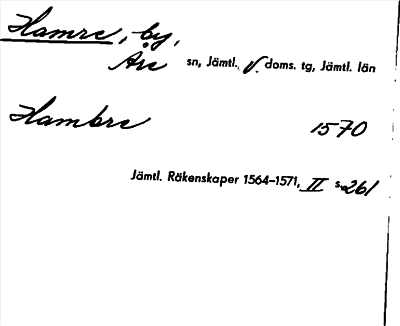 Hamre, by,
Åre sn, Jämtl. v. doms. tg, Jämtl. län
Hambre 1570
Jämtl. Räkenskaper 1564–1571, II s. 261